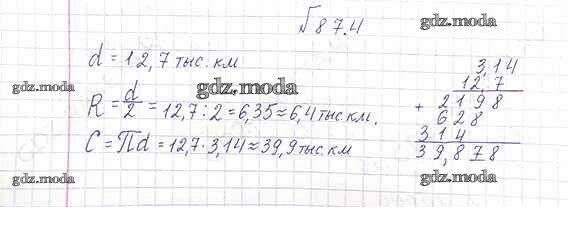 №874
gdz.moda
d = 12,7 тыс. км
gdz.moda
gdz.moda
R = d/2 = 12,7 : 2 = 6,35 ≈ 6,4 тыс км.
C = Пd = 12,7 · 3,14 ≈ 39,9 тыс. км
3,14
12,7
gdz.moda
+ 2198
628
314
39,878
gdz.moda
gdz.moda
gdz.moda